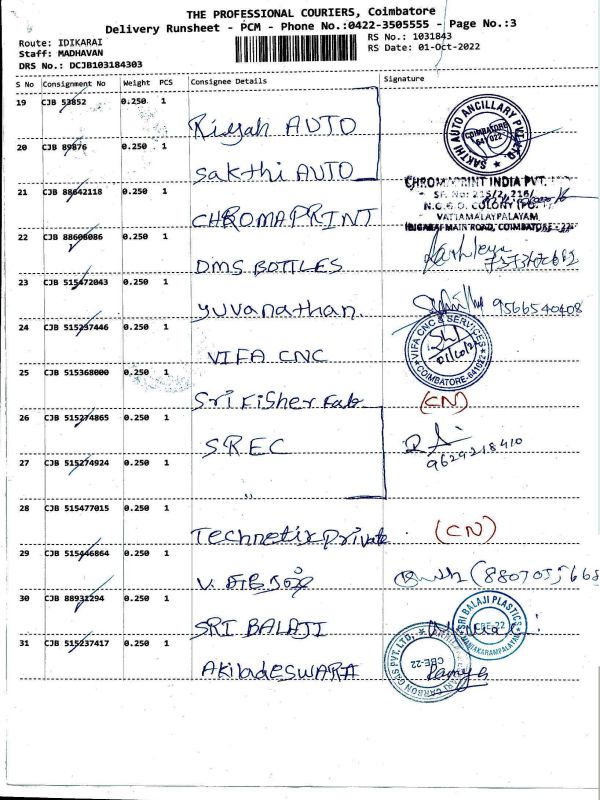 THE PROFESSIONAL COURIERS, Coimbatore
Delivery Runsheet - PCM - Phone No.:0422-3505555 - Page No.:3
Route: IDIKARAI
Staff: MADHAVAN
DRS No.: DCJB103184303
RS No.: 1031843
RS Date: 01-Oct-2022
S No Consignment No Weight PCS Consignee Details Signature
19 CJB 53852 0.250 1
Riyah AUTO
20 CJB 89876 0.250 1
Sakthi AUTO
SAKTHI AUTO ANCILLARY PVT. LTD
COIMBATORE 641022
21 CJB 88642118 0.250 1
CHROMAPRINT
CHROMAPRINT INDIA PVT.
SF. No: 215/2, 216/
N.G.G.O. COLONY (PO.
VATTAMALAYPALAYAM
IDIGARAI MAIN ROAD, COIMBATORE - 22
22 CJB 88608086 0.250 1
DMS BOTTLES
23 CJB 515472043 0.250 1
Yuvanathan. 9566540408
24 CJB 515237446 0.250 1
VIFA CNC
VIFA CNC & SERVICES
COIMBATORE-641022
25 CJB 515368000 0.250 1
Sri Fisher Fab (CN)
26 CJB 515274865 0.250 1
SREC
9629218410
27 CJB 515274924 0.250 1
"
28 CJB 515477015 0.250 1
Technetix Private (CN)
29 CJB 515446864 0.250 1
V.
30 CJB 88931294 0.250 1
SRI BALAJI
SRI BALAJI PLASTICS
CBE-22
MANIAKARAMPALAYAM
31 CJB 515237417 0.250 1
Akiladeswara
CARBON GAS PVT. LTD.
CBE-22